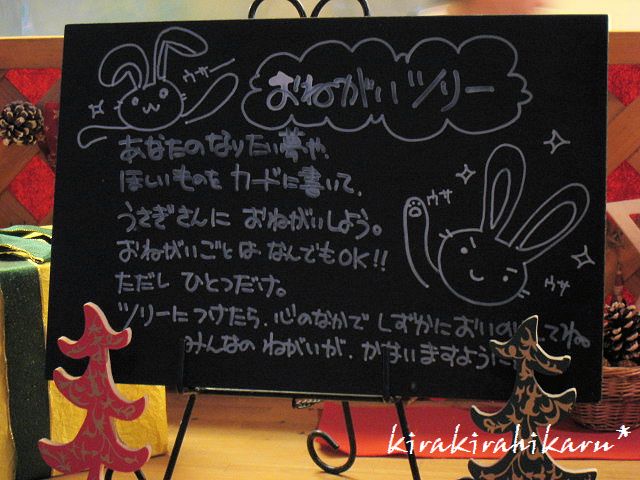 おねがいツリー
ウサー
あなたのなりたい夢や、
ほしいものを カードに書いて、
うさぎさんに おねがいしよう。
ウサ
おねがいごとは なんでもOK!!
ただし ひとつだけ。
ウサ
ツリーにつけたら、心のなかで しずかに てね。
みんなの ねがいが、かないますように
kirakirahikaru*